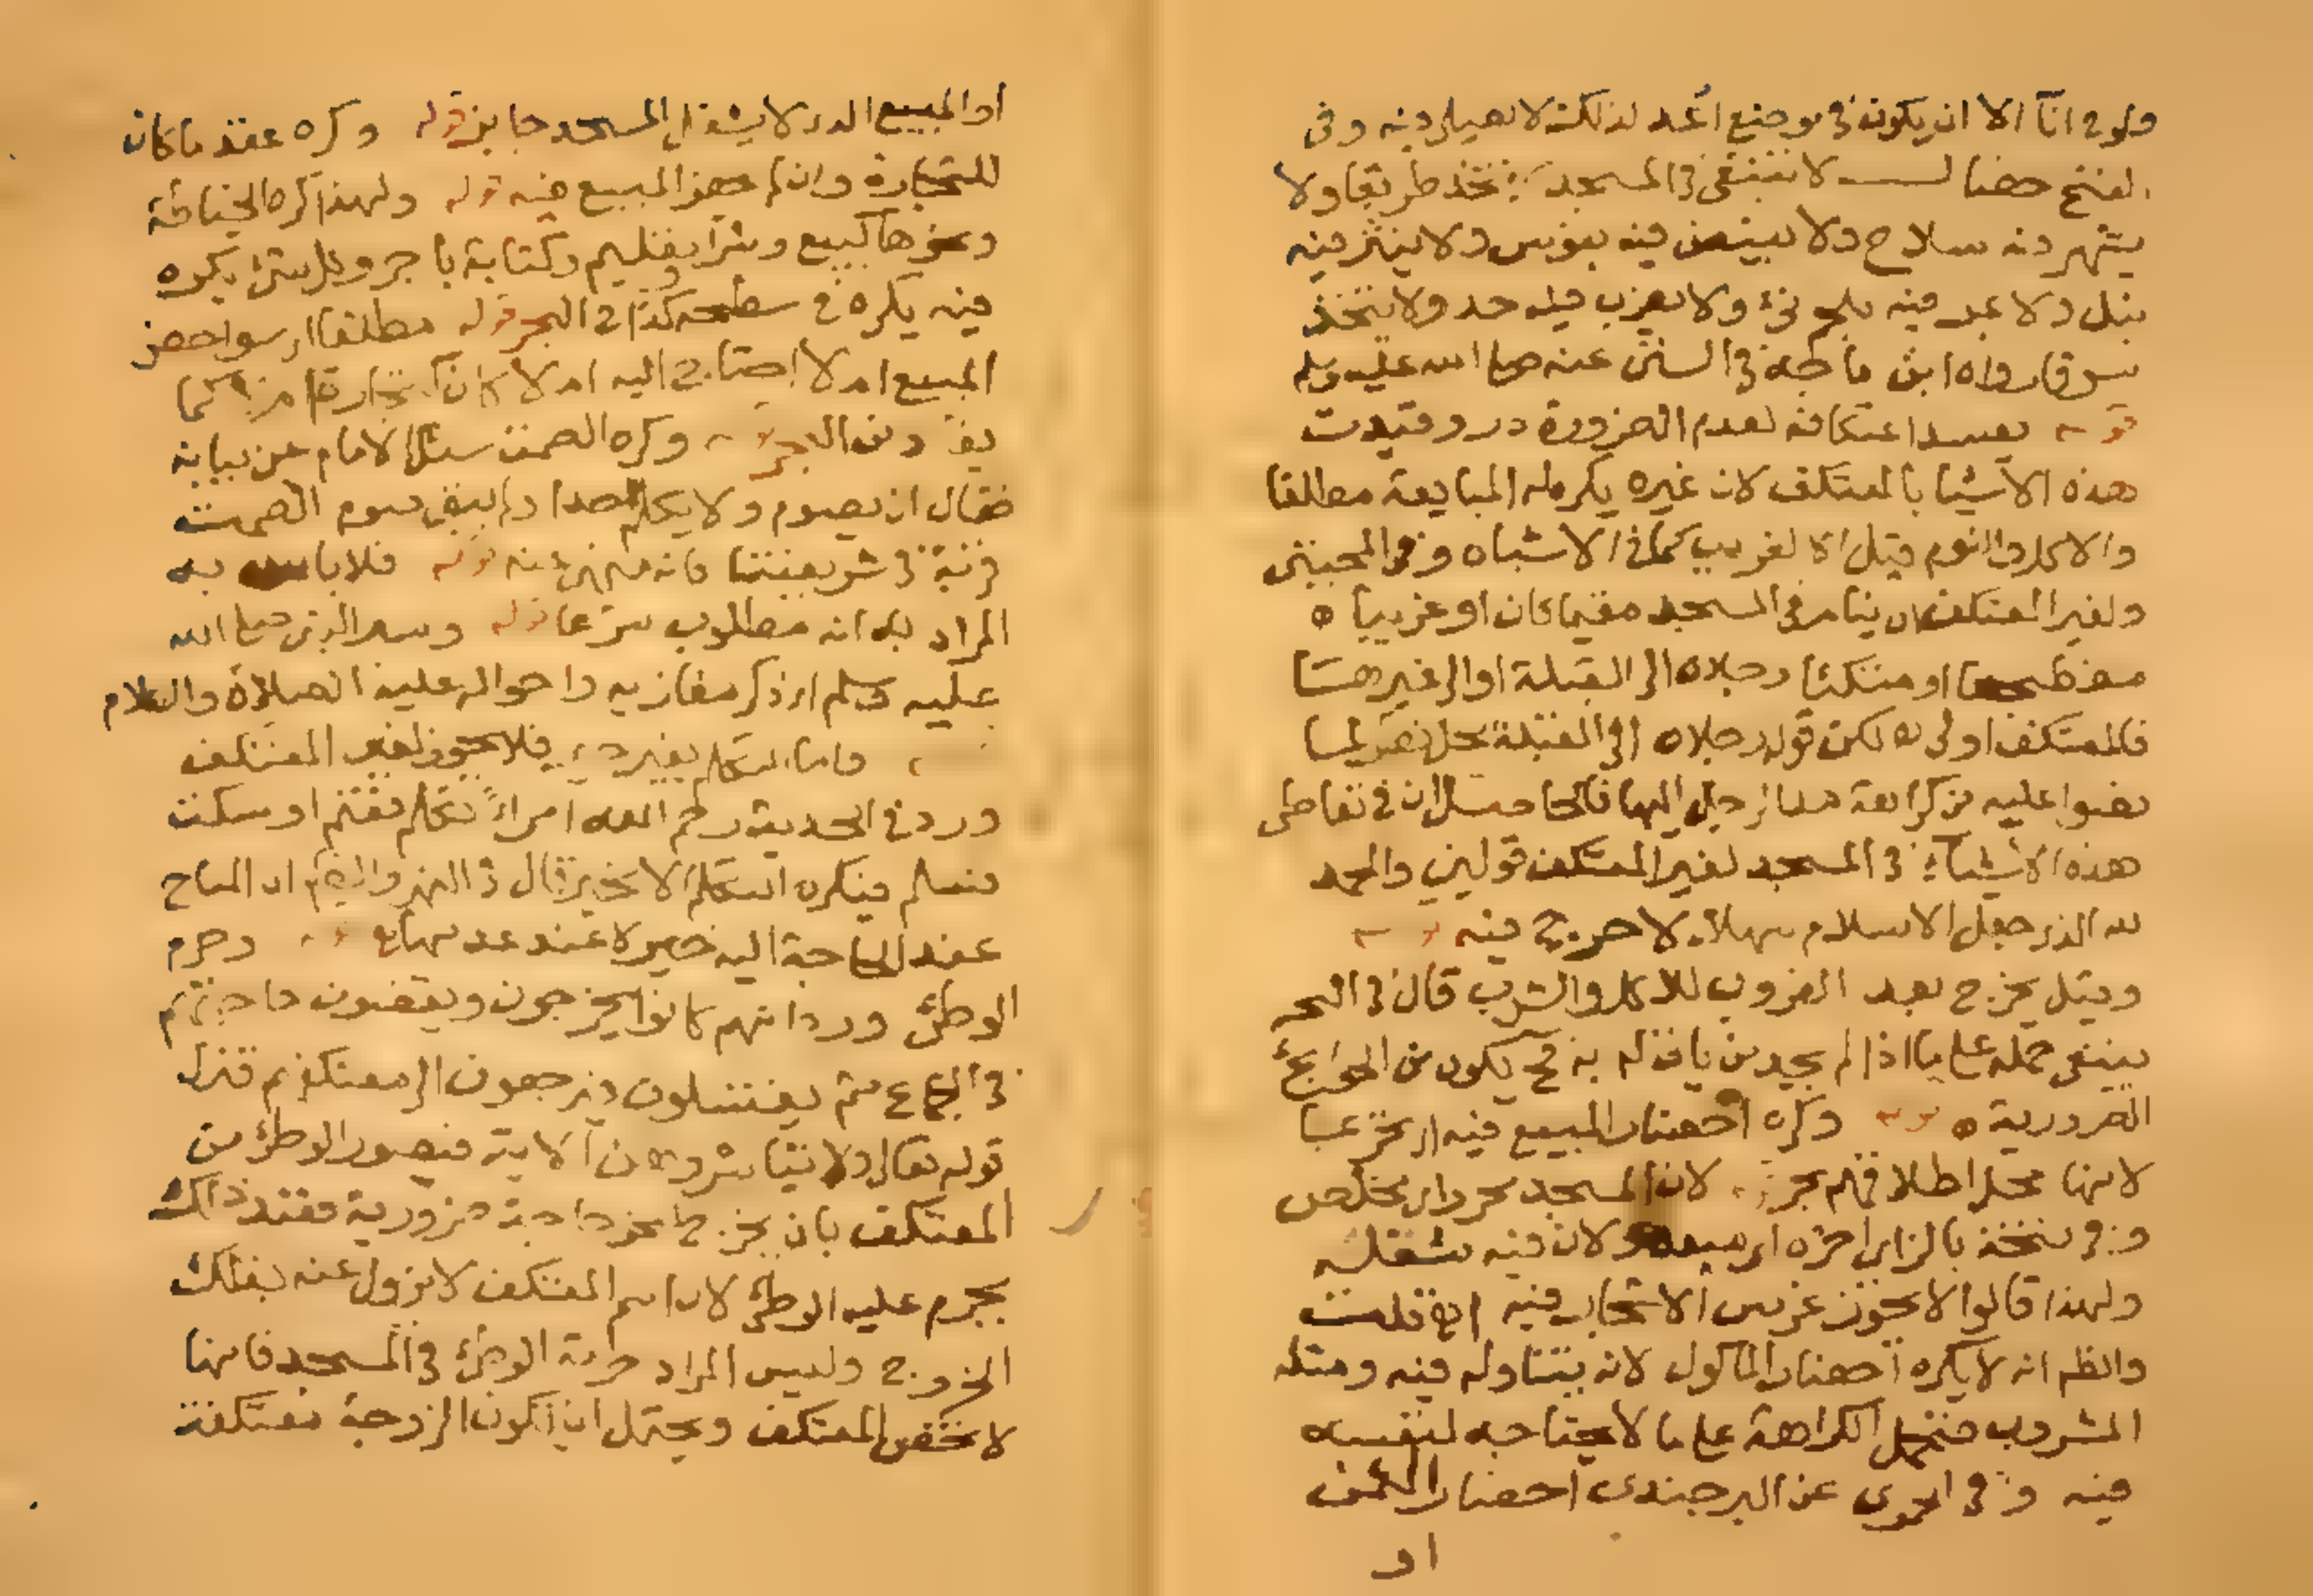 ولو في اناء الا ان يكون في موضع اعد لذلك لا يصلى فيه وفي
الفتح خصال لا تنبغي في المسجد لا يتخذ طريقا ولا
يشهر فيه سلاح ولا ينبض فيه بقوس ولا ينثر فيه
نبل ولا يمر فيه بلحم نيء ولا يضرب فيه حد ولا يتخذ
سوقا رواه ابن ماجه في السنن عنه صلى الله عليه وسلم
قوله يفسد اعتكافه لعدم الضرورة درر وقيدت
هذه الاشيا بالمعتكف لان غيره يكره له المبايعة مطلقا
والاكل والنوم قيل الا لغريب كما في الاشباه وفي المجتبى
ولغير المعتكف ان ينام في المسجد مقيما كان او غريبا ه
مضطجعا او متكئا رجلاه الى القبلة او الى غيرها
فالمعتكف اولى لكن قوله رجلاه الى القبلة محل نظر لما
نصوا عليه من كراهة مد الرجل اليها فالحاصل ان في تعاطي
هذه الاشياء في المسجد لغير المعتكف قولين والحمد
لله الذي جعل الاسلام سهلا لا حرج فيه قوله
وقيل يخرج بعد الغروب للاكل والشرب قال في البحر
ينبغي حمله على ما اذا لم يجد من ياتي له به فح يكون من الحوايج
الضرورية ه قوله وكره احضار المبيع فيه اي تحريما
لانها محل اطلاقهم بحر قوله لان المسجد محرر اي مخلص
وفي نسخة بالزاي احرزه اي ولان فيه شغله
ولهذا قالوا لا يجوز غرس الاشجار فيه قلت
والظاهر انه لا يكره احضار الماكول لانه يتناوله فيه ومثله
المشروب فتحمل الكراهة على ما لا يحتاجه لنفسه
فيه وفي الحموي عن البرجندي احضار الثمن
او
او المبيع الذي لا يشغل المسجد جايز قوله وكره عقد ما كان
للتجارة وان لم يحضر المبيع فيه قوله ولهذا كره الخياطة
ونحوها كبيع وشراء وتعليم وكتابة باجر وكل شئ يكره
فيه يكره في سطحه كذا في البحر قوله مطلقا اي سواء حضر
المبيع ام لا احتاج اليه ام لا كان تجارة ام لا كما
من البحر قوله وكره الصمت سئل الامام عن بيانه
فقال ان يصوم ولا يكلم احدا ولم يبق صوم الصمت
قربة في شريعتنا فانه منهى عنه قوله فلا باس به
المراد به انه مطلوب شرعا قوله وسير النبي صلى الله
عليه وسلم اي ذكر مغازيه واحواله عليه الصلاة والسلام
فاما التكلم بغير فلا يجوز لغير المعتكف
ورد في الحديث رحم الله امراً تكلم فغنم او سكت
فسلم فيكره التكلم الا بخير قال في النهر والظاهر ان المباح
عند الحاجة اليه خير لا عند عدمها قوله وحرم
الوطئ ورد انهم كانوا يخرجون ويقضون حاجتهم
في الجماع ثم يغتسلون ويرجعون الى معتكفهم فنزل
قوله تعالى ولا تباشروهن الاية فتصور الوطئ من
المعتكف بان يخرج لحاجة ضرورية فعند ذلك
يحرم عليه الوطئ لان اسم المعتكف لا يزول عنه بذلك
الخروج وليس المراد حرمة الوطئ في المسجد فانها
لا تختص بالمعتكف ويحتمل ان تكون الزوجة معتكفة